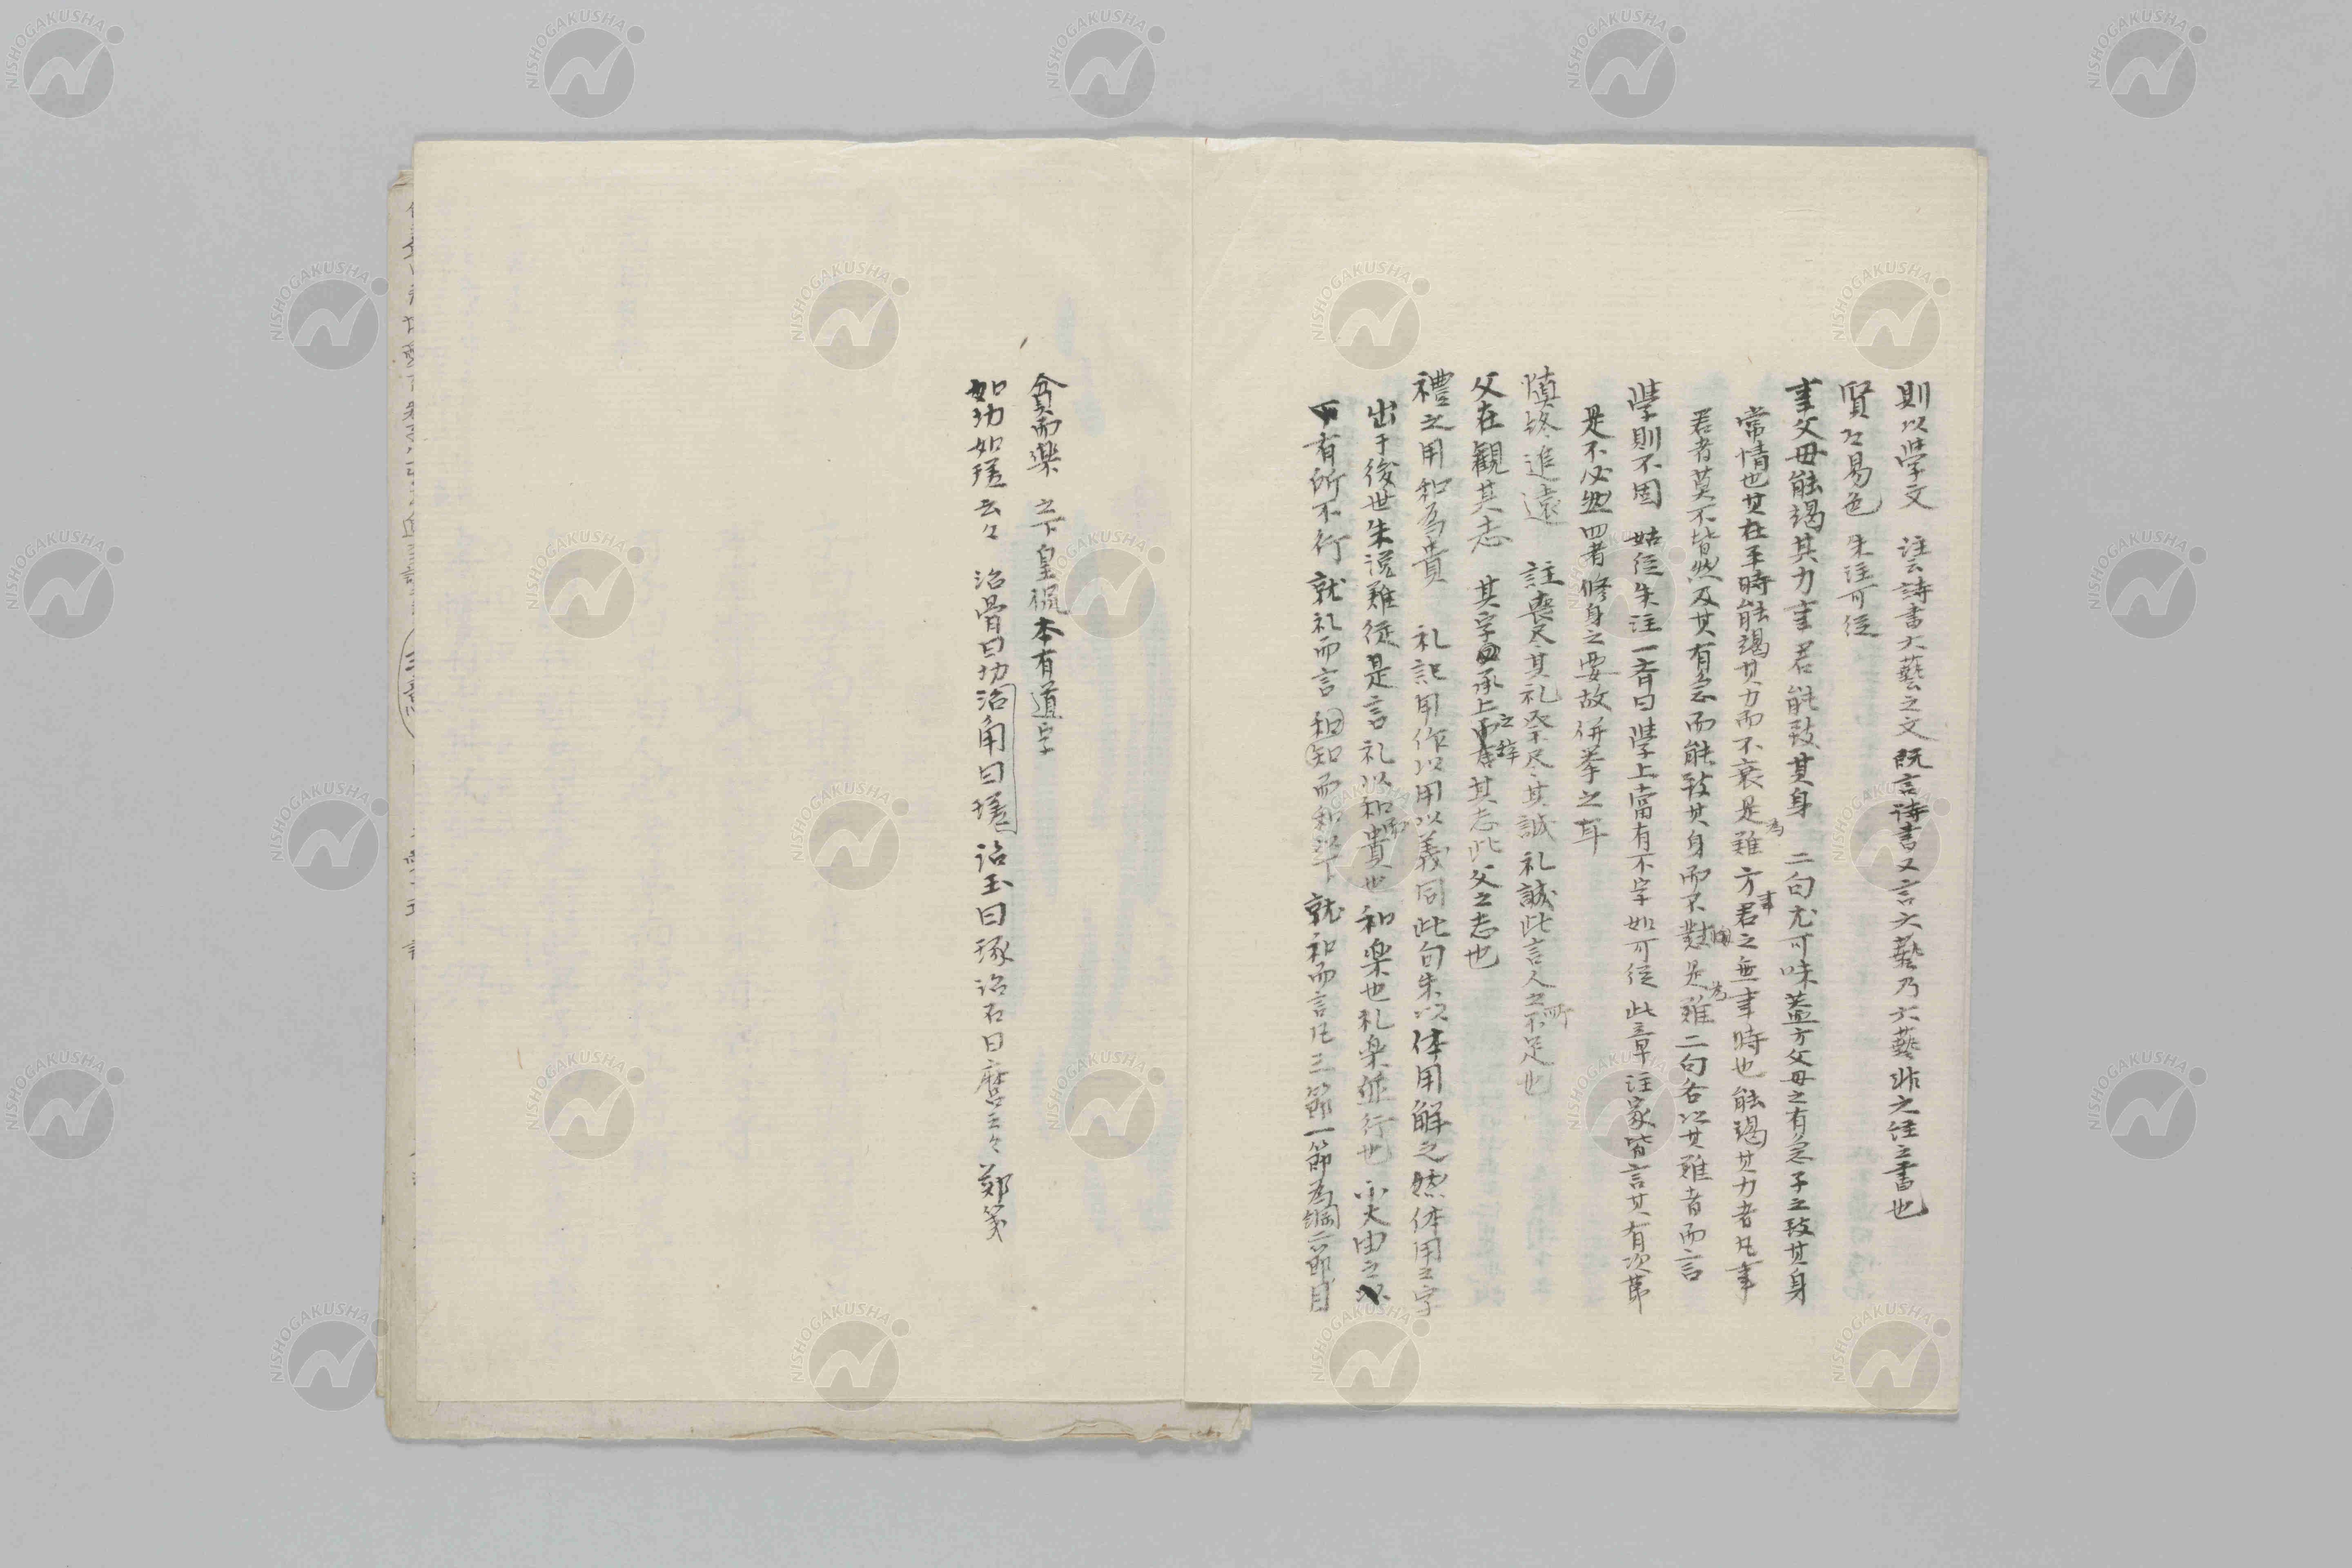 則以学文 注云詩書六藝之文既言詩書又言六藝乃六藝非之注之書也
賢々易色 朱注可従
事父母能竭其力事君能致其身 二句尤可味蓋方父母之有急子之致其身
常情也其在平時能竭其力而不衰是為難方事君之無事時也能竭其力者凡事
君者莫不皆然及其有急而能致其身而不是為難二句各以其難者而言
學則不固 姑従朱注一斉曰學上當有不字如可従此章注家皆言其有次第
是不必然四者修身之要故併挙之耳
慎終追遠 註喪尽其礼祭尽其誠礼誠此言人之所不足也
父在觀其志 其字承上之辞其志此父之志也
禮之用和為貴 礼記用作以用以義同此句朱以体用解之然体用之字
出于後世朱説難従是言礼以和為貴也和楽也礼楽並行也小大由之以
下有所不行就礼而言和知而和以下就和而言凡三節一節為綱二節目
貧而楽 之下皇侃本有道字
如切如瑳云々 治骨曰切治角曰瑳治玉曰琢治石曰磨云々鄭箋
NISHOGAKUSHA